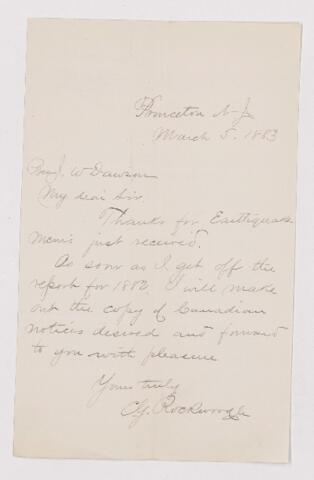 Princeton N. J.
March 5. 1883
Prof. J. W Dawson
My dear Sir.
Thanks for Earthquake
Mems just received.
As soon as I get off the
report for 1882 I will make
out the copy of Canadian
notices desired and forward
to you with pleasure
Yours truly
C. G. Rockwood Jr